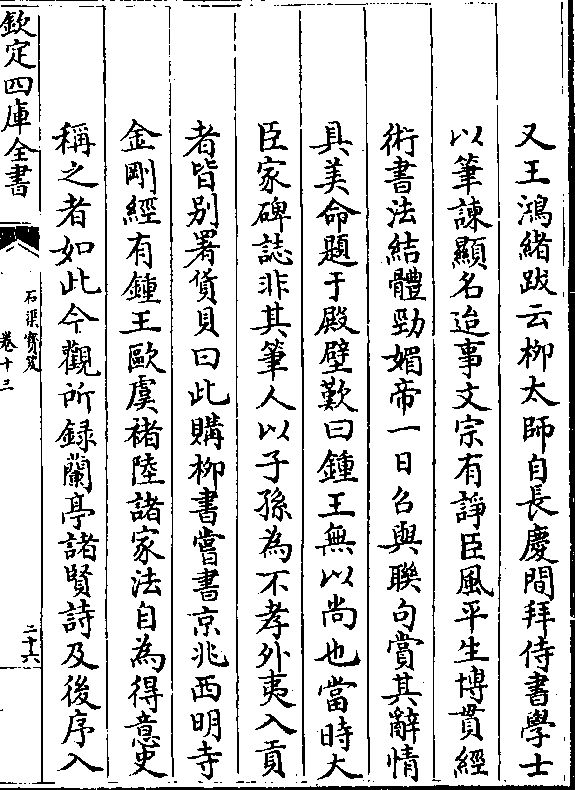 又王鴻緒跋云柳太師自長慶間拜侍書學士
以筆諫顯名迨事文宗有諍臣風平生博貫經
術書法結體勁媚帝一日召與聯句賞其辭情
具美命題于殿壁歎曰鍾王無以尚也當時大
臣家碑誌非其筆人以子孫為不孝外夷入貢
者皆别署貨貝曰此購柳書嘗書京兆西明寺
金剛經有鍾王歐虞褚陸諸家法自為得意史
稱之者如此今觀所録蘭亭諸賢詩及後序入
欽定四庫全書
石渠寳笈
卷十三
二十六